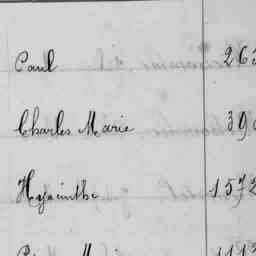 Paul 26
Charles Marie 39
Hyacinthe 1572